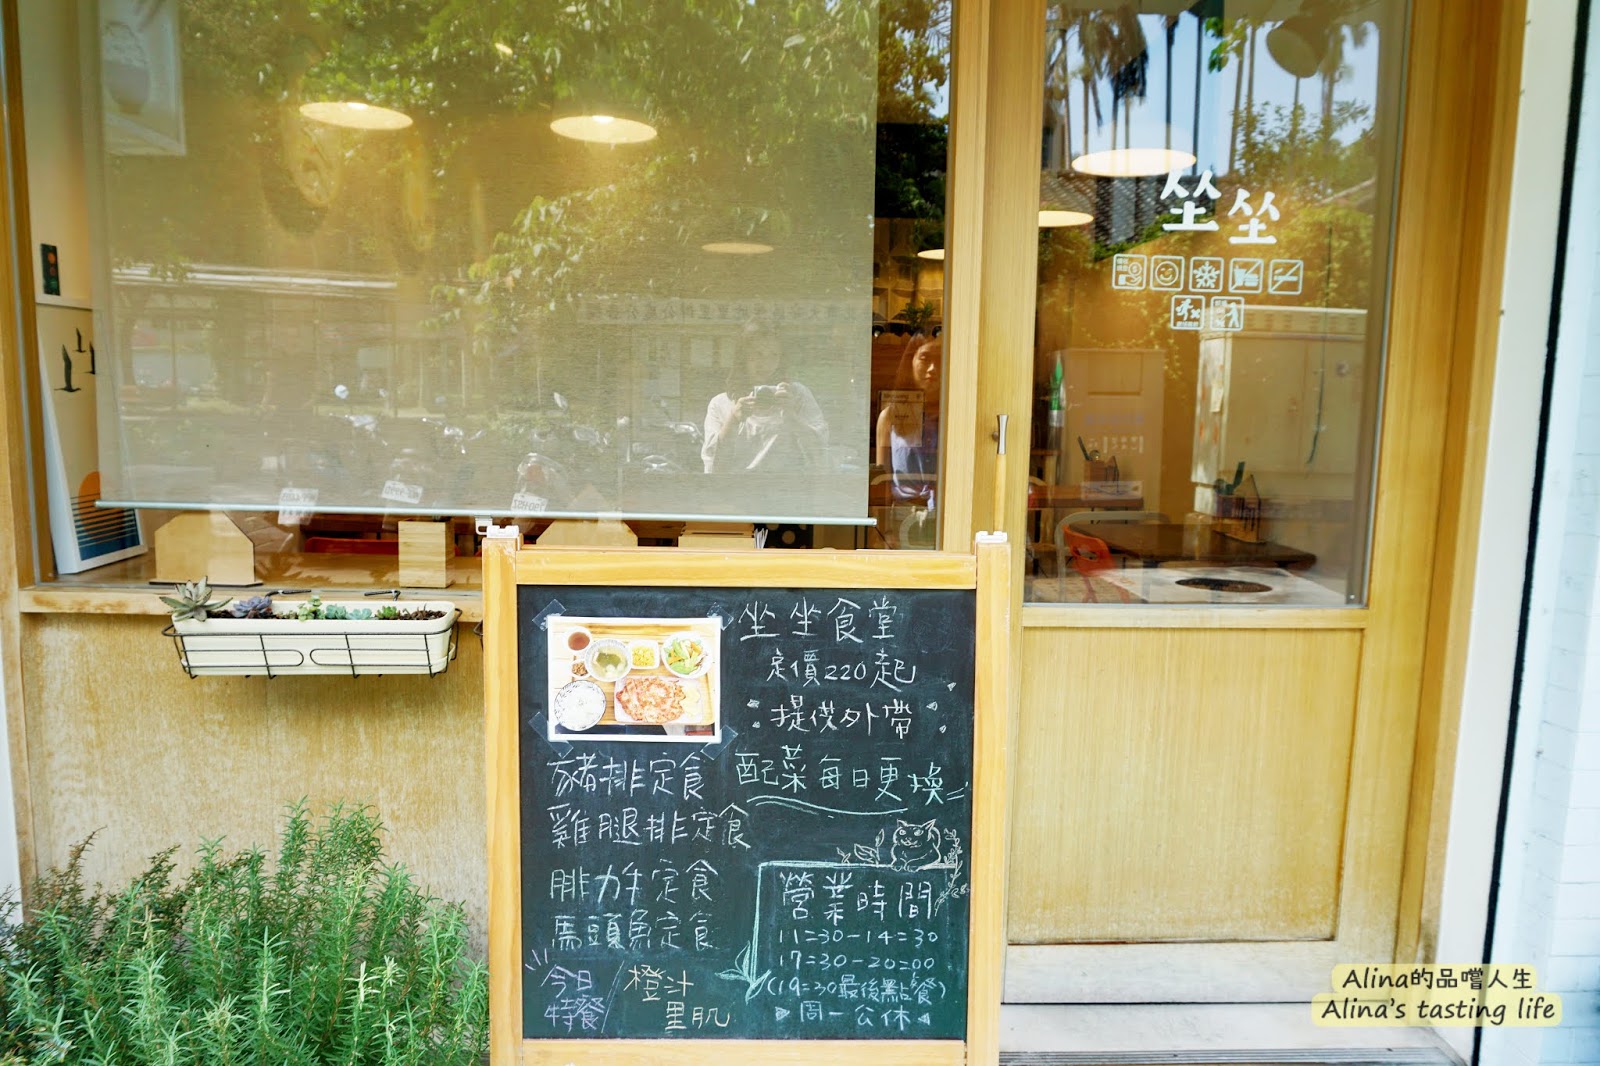 坐坐
坐坐食堂
定價220起
提供外帶
配菜每日更換
豬排定食
雞腿排定食
腓力牛定食
馬頭魚定食
今日特餐
橙汁里肌
營業時間
11:30-14:30
17:30-20:00
(19:30最後點餐)
周一公休
Alina的品嚐人生
Alina's tasting life